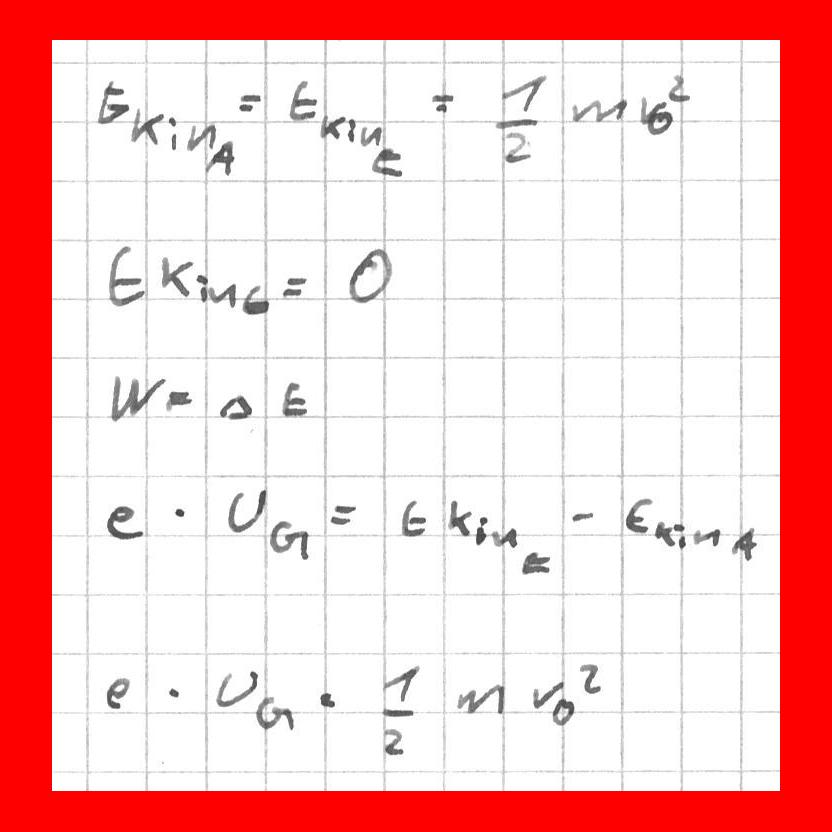 E_kin_A = E_kin_E = 1/2 m v₀²
E kin_E = 0
W = Δ E
e · U_G = E kin_E - E_kin_A
e · U_G = 1/2 m v₀²